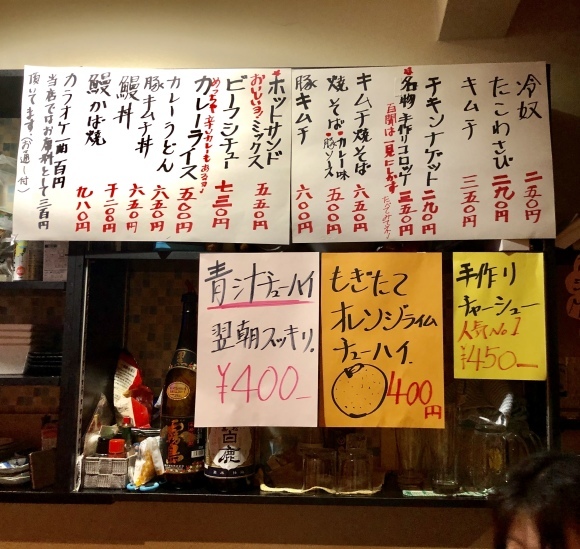 冷奴 二五〇円
たこわさび 二九〇円
キムチ 三五〇円
チキンナゲット 二九〇円
名物 手作りコロッケ 三五〇円
百聞は一見にしかず
キムチ焼そば 六五〇円
焼そば カレー味 豚ソース 六五〇円
豚キムチ 六〇〇円
ホットサンド
おいしいョ! ミックス 五五〇円
ビーフシチュー 七三〇円
カレーライス 五〇〇円
カレーうどん 六五〇円
豚キムチ丼 六五〇円
鰻丼 千二〇〇円
鰻かば焼 九八〇
カラオケ一曲百円
当店ではお席料として三百円
頂いてます。(お通し付)
青汁チューハイ
翌朝スッキリ.
¥400-
もぎたて
オレンジライム
チューハイ.
400円
手作り
チャーシュー
人気No.1
¥450-